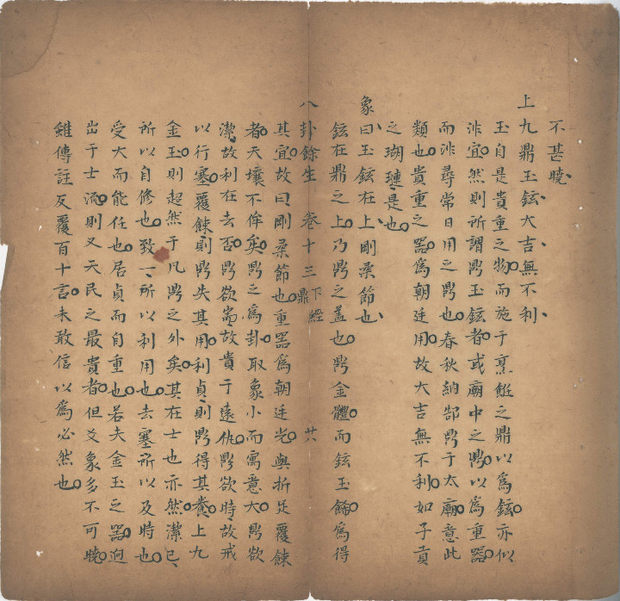 不甚曉
上九鼎玉鉉大吉無不利
玉自是貴重之物而施于烹飪之鼎以爲鉉亦似
非宜然則所謂鼎玉鉉者或廟中之鼎以爲重器
而非尋常日用之鼎也春秋納郜鼎于太廟意此
類也貴重之器爲朝廷用故大吉無不利如子貢
之瑚璉是也
象曰玉鉉在上剛柔節也
鉉在鼎之上乃鼎之蓋也鼎金體而鉉玉餙爲得
八卦餘生 卷十三 下經 鼎
其宜故曰剛柔節也重器爲朝廷光與折足覆餗
者天壤不侔矣鼎之爲卦取象小而寓意大鼎欲
潔故利在去否鼎欲耑故貴于遠仇鼎欲時故戒
以行塞覆餗則鼎失其用利貞則鼎得其養上九
金玉則超然于凡鼎之外矣其在士也亦然潔己
所以自修也致一所以利用也去塞所以及時也
受大而能任也居貞而自重也若夫金玉之器迥
出于士流則又天民之最貴者但爻象多不可曉
雖傳註反覆百十言未敢信以爲必然也